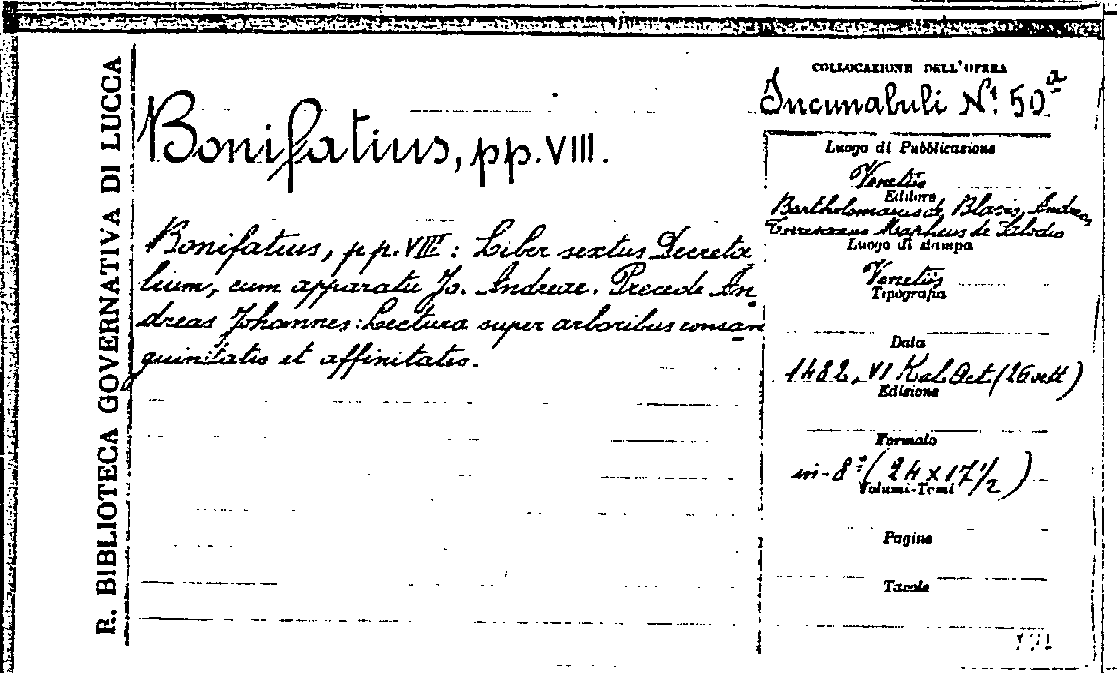 R. BIBLIOTECA GOVERNATIVA DI LUCCA
Bonifatius, pp. VIII.
Bonifatius, pp. VIII : Liber sextus Decreta
lium, cum apparatu Jo. Andreae. Precede An
dreas Johannes: Lectura super arboribus consan
guinitatis et affinitatis.
COLLOCAZIONE DELL'OPERA
Incunabuli Nº. 50ª
Luogo di Pubblicazione
Venetiis
Editore
Bartholomaeus de Blavis, Andrea
Torresanus Mapheus de
Luogo di stampa
Venetiis
Tipografia
Data
1482, VI Kal. Oct. (26 sett)
Edizione
Formato
in-8º (24 x 17 1/2)
Volumi-Tomi
Pagine
Tavole